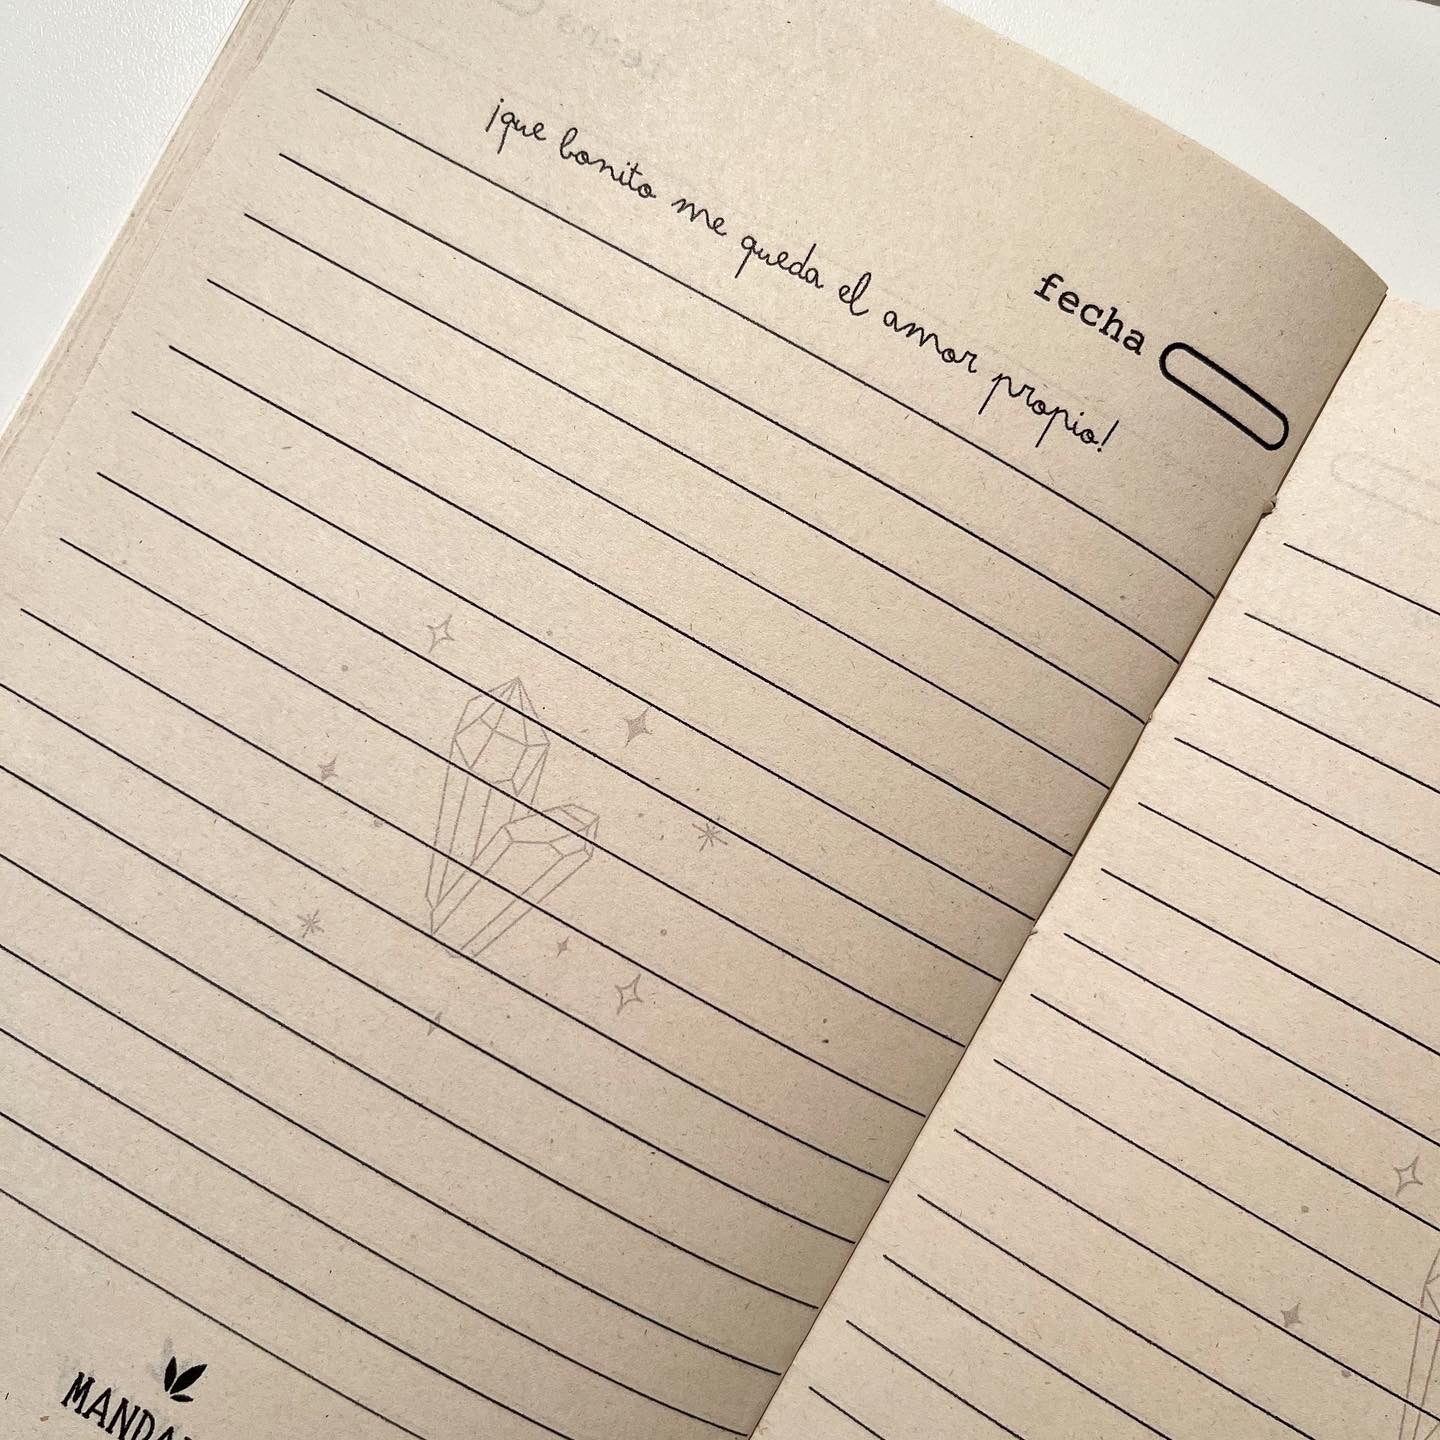 fecha
¡que bonito me queda el amor propio!